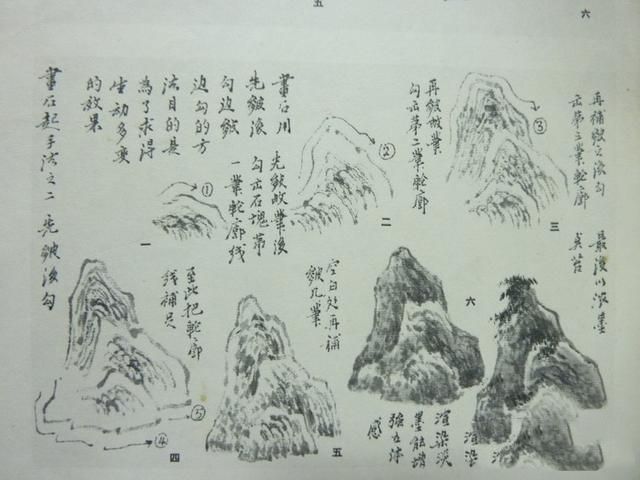 五
六
畫石起手法之二 先皴後勾
畫石用
先皴後
勾边皴
边勾的方
法目的是
為了求得
生动多变
的效果
先皴数筆後
勾出石塊第
一筆輪廓线
①
一
再皴数筆
勾出第二筆輪廓
②
二
再補皴之後勾
出第三筆輪廓
③
三
至此把輪廓
线補足
④
⑤
四
空白处再補
皴几筆
五
六
渲染淡
墨能增
強立体
感
最後以浓墨
点苔
渲染